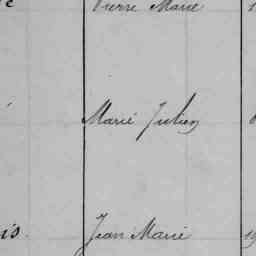 Pierre Marie
Marie Julien
is. Jean Marie